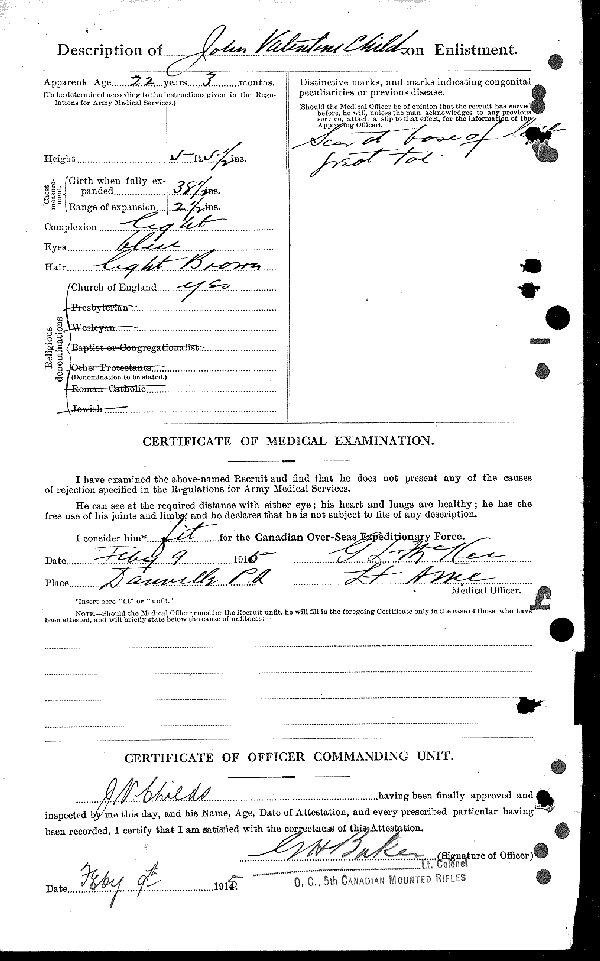 Description of John Valentine Childs on Enlistment.
Apparent Age 22 years 3 months.
(To be determined according to the instructions given in the Regulations for Army Medical Services.)
Distinctive marks, and marks indicating congenital peculiarities or previous disease.
(Should the Medical Officer be of opinion that the recruit has served before, he will, unless the man acknowledges to any previous service, attach a slip to that effect, for the information of the Approving Officer).
Scar at base of
toe
Height 5 ft. 5 1/2 ins.
Chest measurement.
Girth when fully expanded 38 1/2 ins.
Range of expansion 2 1/2 ins.
Complexion light
Eyes blue
Hair Light Brown
Religious denominations
Church of England yes
Presbyterian
Wesleyan
Baptist or Congregationalist
Other Protestants
(Denomination to be stated.)
Roman Catholic
Jewish
CERTIFICATE OF MEDICAL EXAMINATION.
I have examined the above-named Recruit and find that he does not present any of the causes
of rejection specified in the Regulations for Army Medical Services.
He can see at the required distance with either eye; his heart and lungs are healthy; he has the
free use of his joints and limbs, and he declares that he is not subject to fits of any description.
I consider him* fit for the Canadian Over-Seas Expeditionary Force.
Date Feby 9 1915
Place Danville P.Q Lt AMC
Medical Officer.
*Insert here "fit" or "unfit."
NOTE.—Should the Medical Officer consider the Recruit unfit, he will fill in the foregoing Certificate only in the case of those who have
been attested, and will briefly state below the cause of unfitness:—
CERTIFICATE OF OFFICER COMMANDING UNIT.
J V Childs having been finally approved and
inspected by me this day, and his Name, Age, Date of Attestation, and every prescribed particular having
been recorded, I certify that I am satisfied with the correctness of this Attestation.
G H Baker (Signature of Officer)
Lt. Colonel
O. C., 5th CANADIAN MOUNTED RIFLES
Date Feby 9th 1915